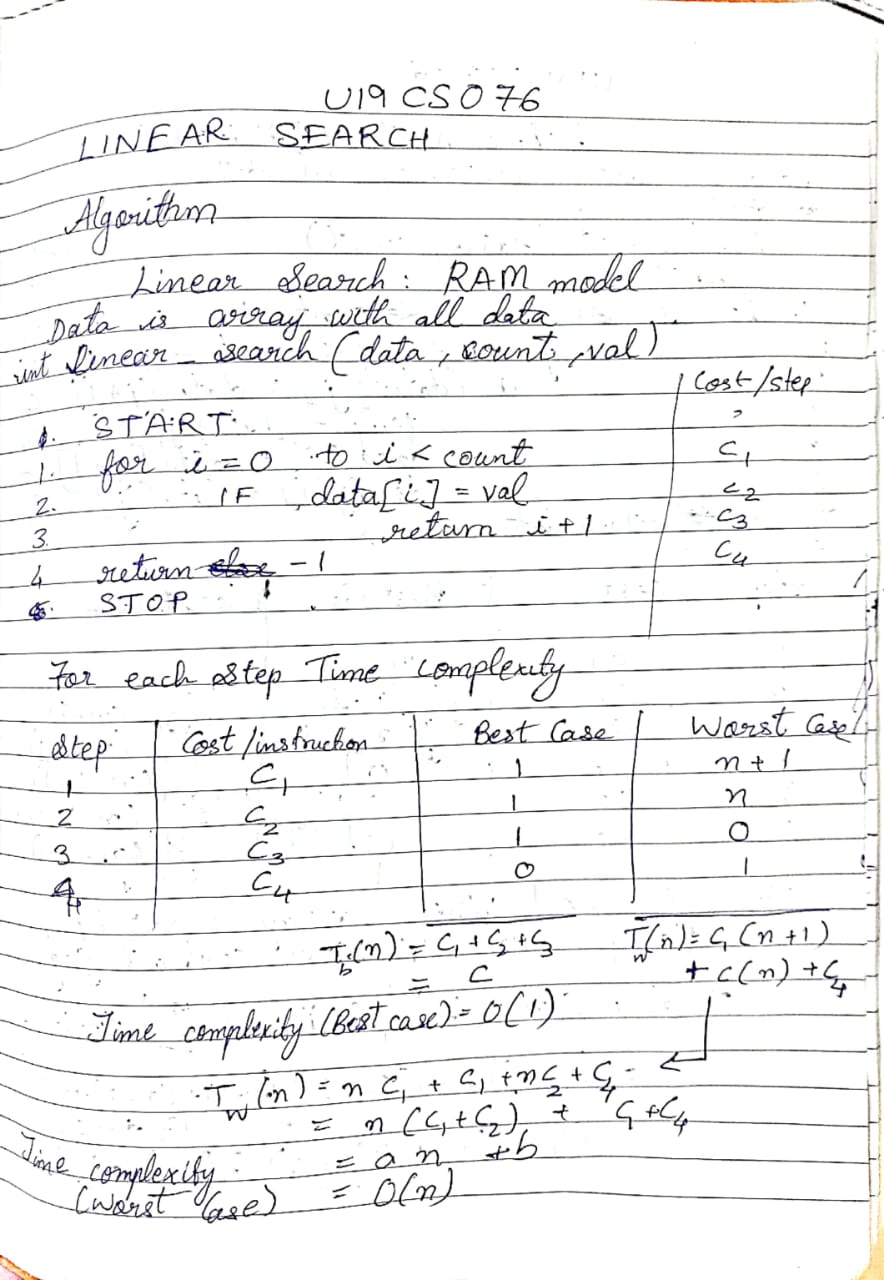 U19 CS 076
LINEAR SEARCH
Algorithm
Linear Search : RAM model
Data is array with all data
int linear_search (data, count, val)
Cost/step
START
1. for i = 0 to i < count C1
2. IF data[i] = val C2
3 return i+1 C3
4 return -1 C4
STOP
For each step Time complexity
Step Cost/instruction Best Case Worst Case
1 C1 1 n+1
2 C2 1 n
3 C3 1 0
4 C4 0 1
Tb(n) = C1 + C2 + C3 Tw(n) = C1 (n+1)
= C + C(n) + C4
Time complexity (Best case) = O(1)
Tw(n) = n C1 + C1 + nC2 + C4
= n (C1+C2) + C1+C4
= an + b
Time complexity
(Worst Case) = O(n)